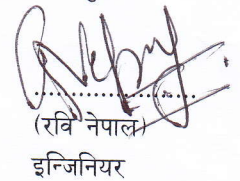 (रवि नेपाल)
इन्जिनियर